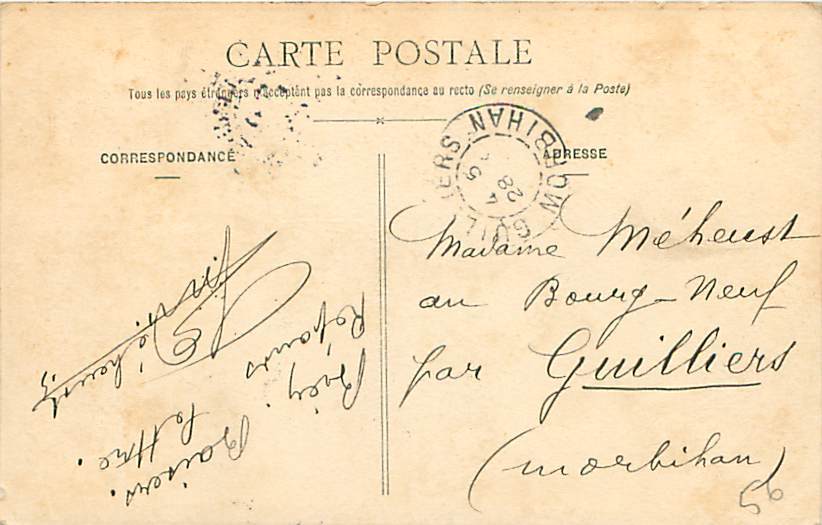 CARTE POSTALE
Tous les pays étrangers n'acceptent pas la correspondance au recto (Se renseigner à la Poste)
CORRESPONDANCE
ADRESSE
GUILLIERS MORBIHAN
28
Madame Méheust
au Bourg-Neuf
par Guilliers
(Morbihan)
56
Baisers.
lettre.
Réponds
Méheust